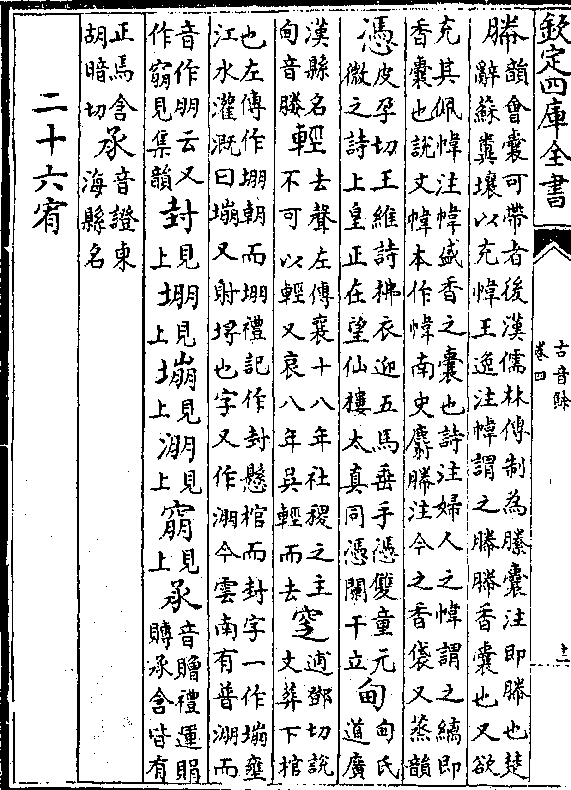 欽定四庫全書
古音餘
卷四
十二
幐韻會囊可帶者後漢儒林傳制為縢囊注即幐也楚
辭蘇糞壤以充幃王逸注幃謂之幐幐香囊也又欲
充其佩幃注幃盛香之囊也詩注婦人之幃謂之縭即
香囊也說文幃本作幃南史麝幐注今之香袋又蒸韻
憑皮孕切王維詩拂衣迎五馬垂手憑雙童元
微之詩上皇正在望仙樓太真同憑闌干立甸甸氏道廣
漢縣名甸音幐輕去聲左傳襄十八年社稷之主
不可以輕又哀八年吳輕而去窆逋鄧切說文葬下棺
也左傳作堋朝而堋禮記作封懸棺而封字一作塴壅
江水灌溉曰塴又射埒也字又作淜今雲南有普淜而
音作明云又作窉見集韻封見上堋見上塴見上淜見上窉見上承音贈禮運賵賻承含皆有
正焉含胡暗切承音證東海縣名
二十六宥